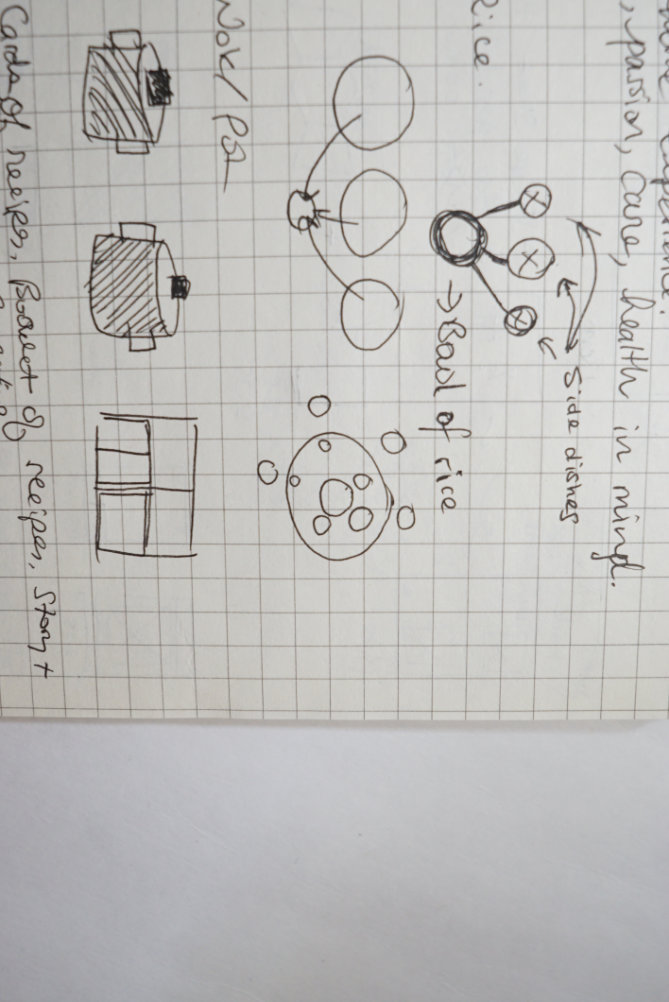 , passion, care, health in mind.
Rice.
Side dishes
→ Bowl of rice
Wok / Pot
Cards of recipes, Booklet of recipes, Story +